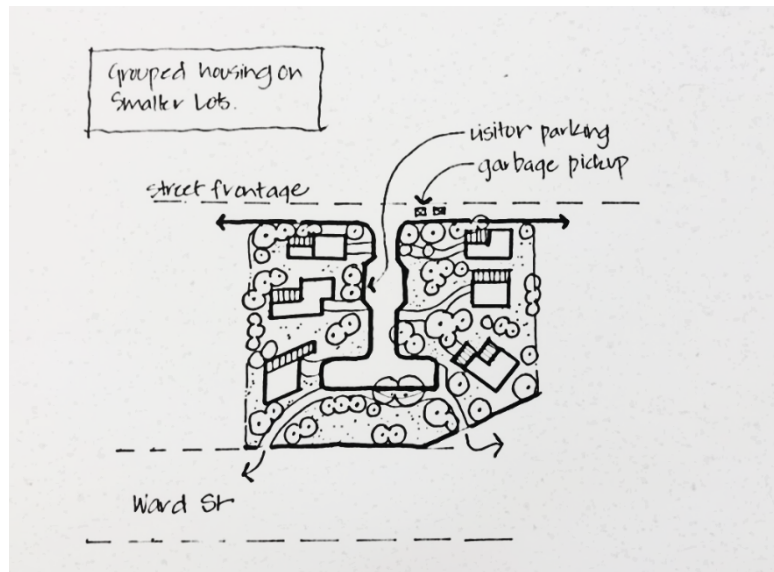 Grouped housing on
Smaller Lots.
visitor parking
garbage pickup
street frontage
Ward St